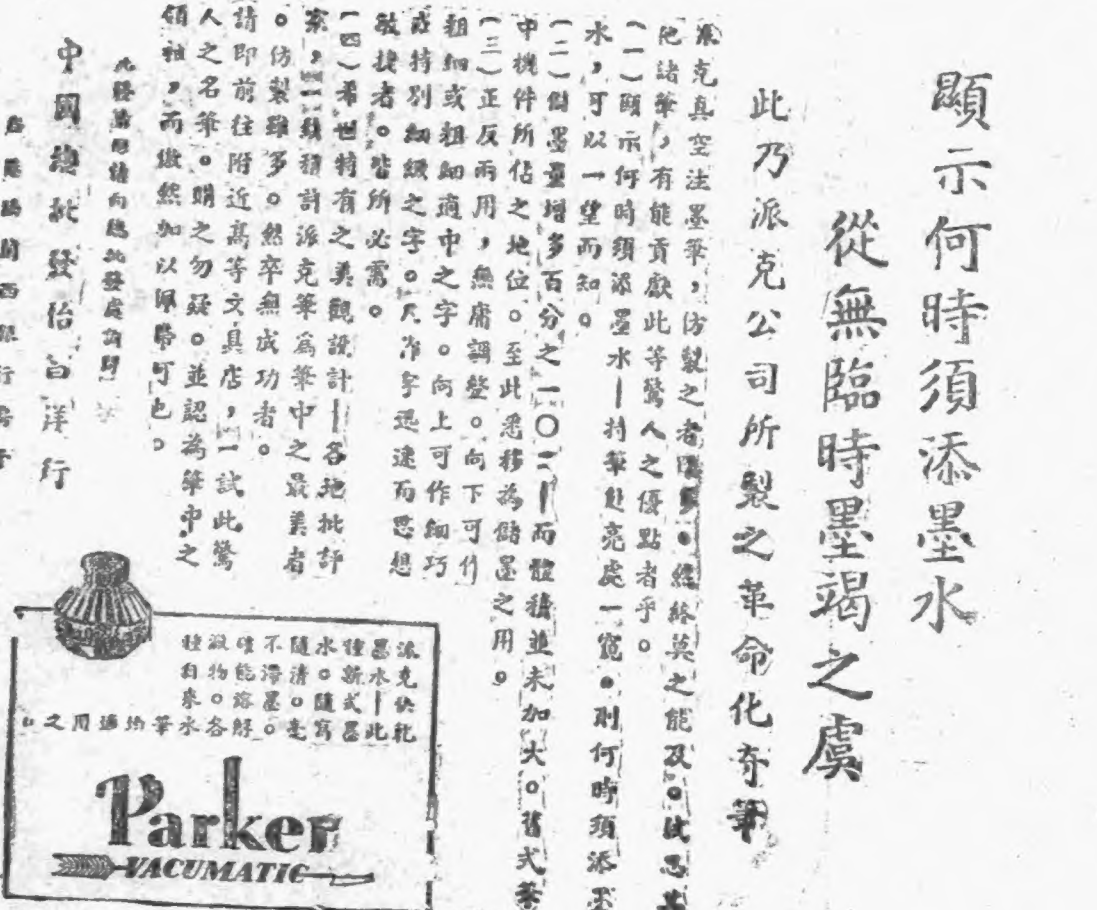 顯示何時須添墨水
從無臨時墨竭之虞
此乃派克公司所製之革命化奇筆
派克真空注墨筆,仿製之者雖多。終莫之能及。試思其
他諸筆,有能貢獻此等驚人之優點者乎。
(一)顯示何時須添墨水—持筆赴亮處一窺。則何時須添墨
水,可以一望而知。
(二)儲墨量增多百分之一〇二—而體積並未加大。舊式筆
中機件所佔之地位。至此悉移為儲墨之用。
(三)正反兩用,無庸調整。向下可作
粗細或粗細適中之字。向上可作細巧
或特別細緻之字。凡作字迅速而思想
敏捷者。皆所必需。
(四)希世特有之美觀設計—各地批評
家,一致預計派克筆爲筆中之最美者
。仿製雖多。然卒無成功者。
請即前往附近高等文具店,一試此驚
人之名筆。購之勿疑。並認為筆中之
領袖,而傲然加以佩帶可也。
請向總批發處詢問
中國總批發怡昌洋行
西銀行
派克快乾
墨水—此
種新式墨
水。隨寫
隨清。毫
不滯墨。
確能溶解
澱物。各
種自來水
筆均適用之。
Parker
VACUMATIC